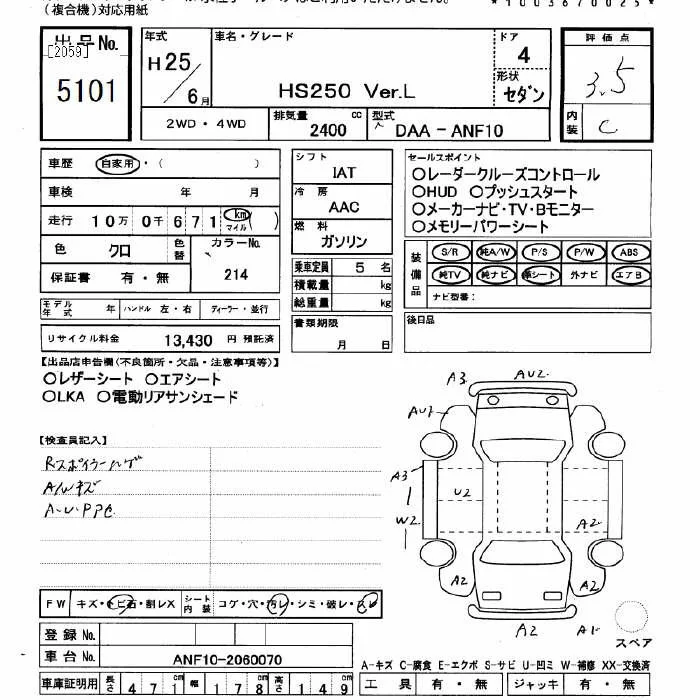 (複合機)対応用紙
*1003670025*
出品No.
[2059]
5101
年式
H25/6月
車名・グレード
HS250 Ver.L
ドア
4
形状
セダン
2WD・4WD
排気量
2400 cc
型式
DAA-ANF10
評価点
3.5
内装
C
車歴 自家用・( )
車検 年 月
走行 10万0千671 km マイル ( )
色 クロ
色替
カラーNo.
214
保証書 有・無
シフト
IAT
冷房
AAC
燃料
ガソリン
乗車定員 5 名
積載量 kg
総重量 kg
セールスポイント
○レーダークルーズコントロール
○HUD ○プッシュスタート
○メーカーナビ・TV・Bモニター
○メモリーパワーシート
装備品
S/R 純A/W P/S P/W ABS
純TV 純ナビ 革シート 外ナビ エアB
ナビ型番:
モデル年式 年 ハンドル 左・右 ディーラー・並行
リサイクル料金 13,430 円 預託済
書類期限
月 日
後日品
【出品店申告欄(不良箇所・欠品・注意事項等)】
○レザーシート ○エアシート
○LKA ○電動リアサンシェード
【検査員記入】
Rスポイラーハゲ
A/Wキズ
A-U-PP他
A3 AU2.
AU1
A3
W2
U2
A2
A2 A2
A2 A1
スペア
FW キズ・トビ石・割レX
シート内装 コゲ・穴・汚レ・シミ・破レ・スレ
登録No.
車台No. ANF10-2060070
車庫証明用 長さ 471cm 幅 178cm 高さ 149cm
A-キズ C-腐食 E-エクボ S-サビ U-凹ミ W-補修 XX-交換済
工具 有・無 ジャッキ 有・無